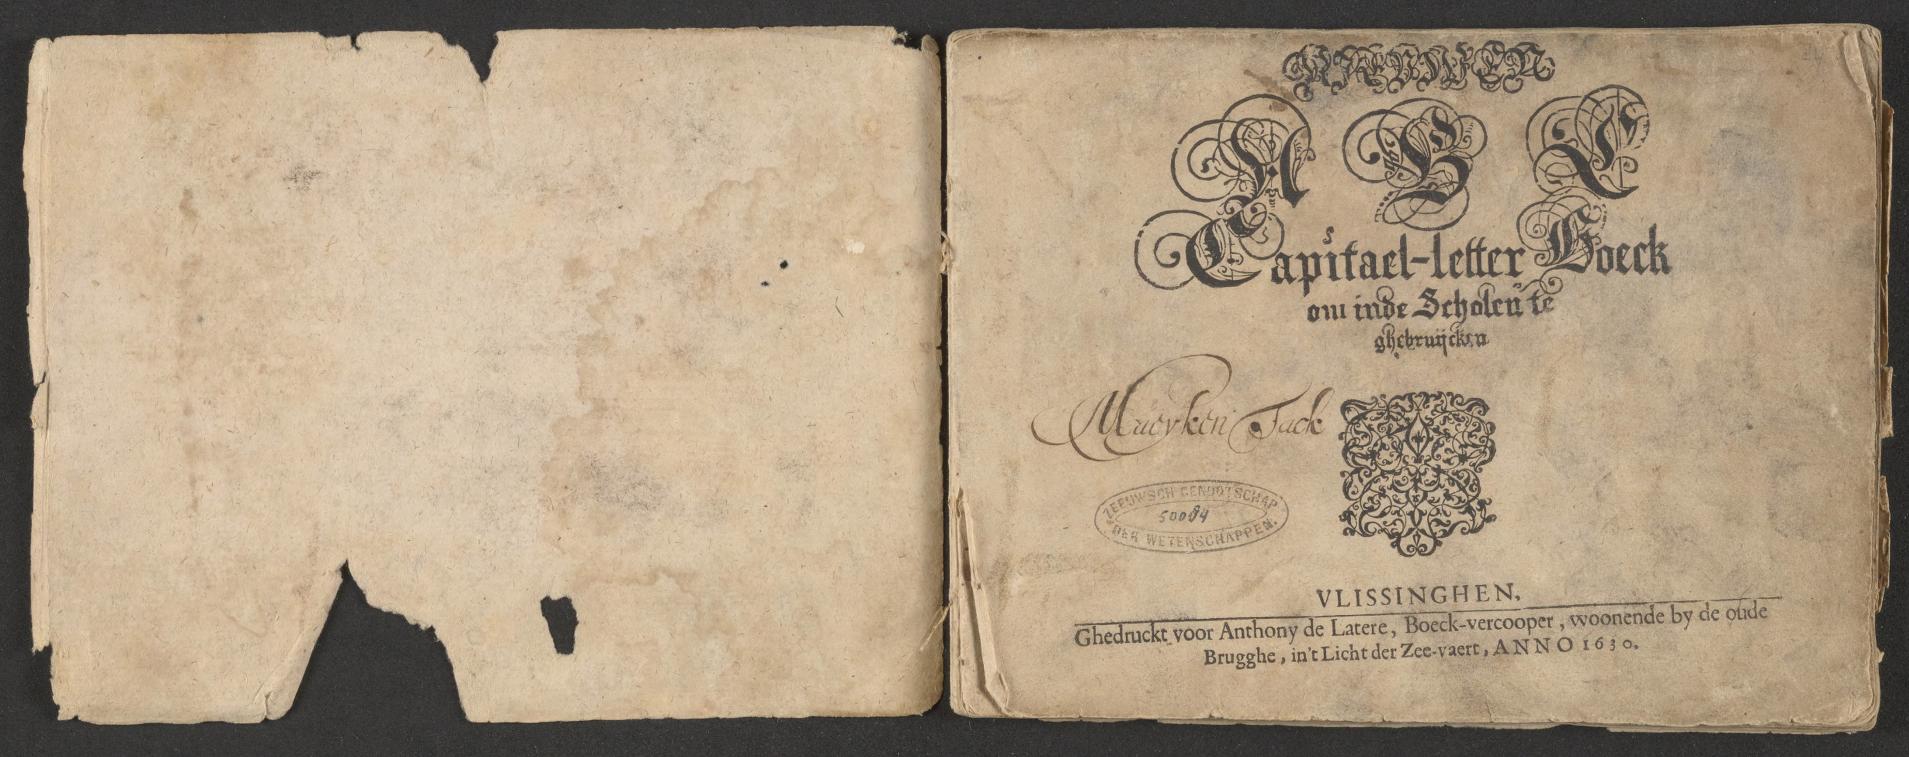 NIEUWEN
A B C
Capitael-letter Boeck
om inde Scholen te
ghebruijcken
Maeyken Tack
ZEEUWSCH GENOOTSCHAP
50084
DER WETENSCHAPPEN.
VLISSINGHEN,
Ghedruckt voor Anthony de Latere, Boeck-vercooper, woonende by de oude
Brugghe, in't Licht der Zee-vaert, ANNO 1630.